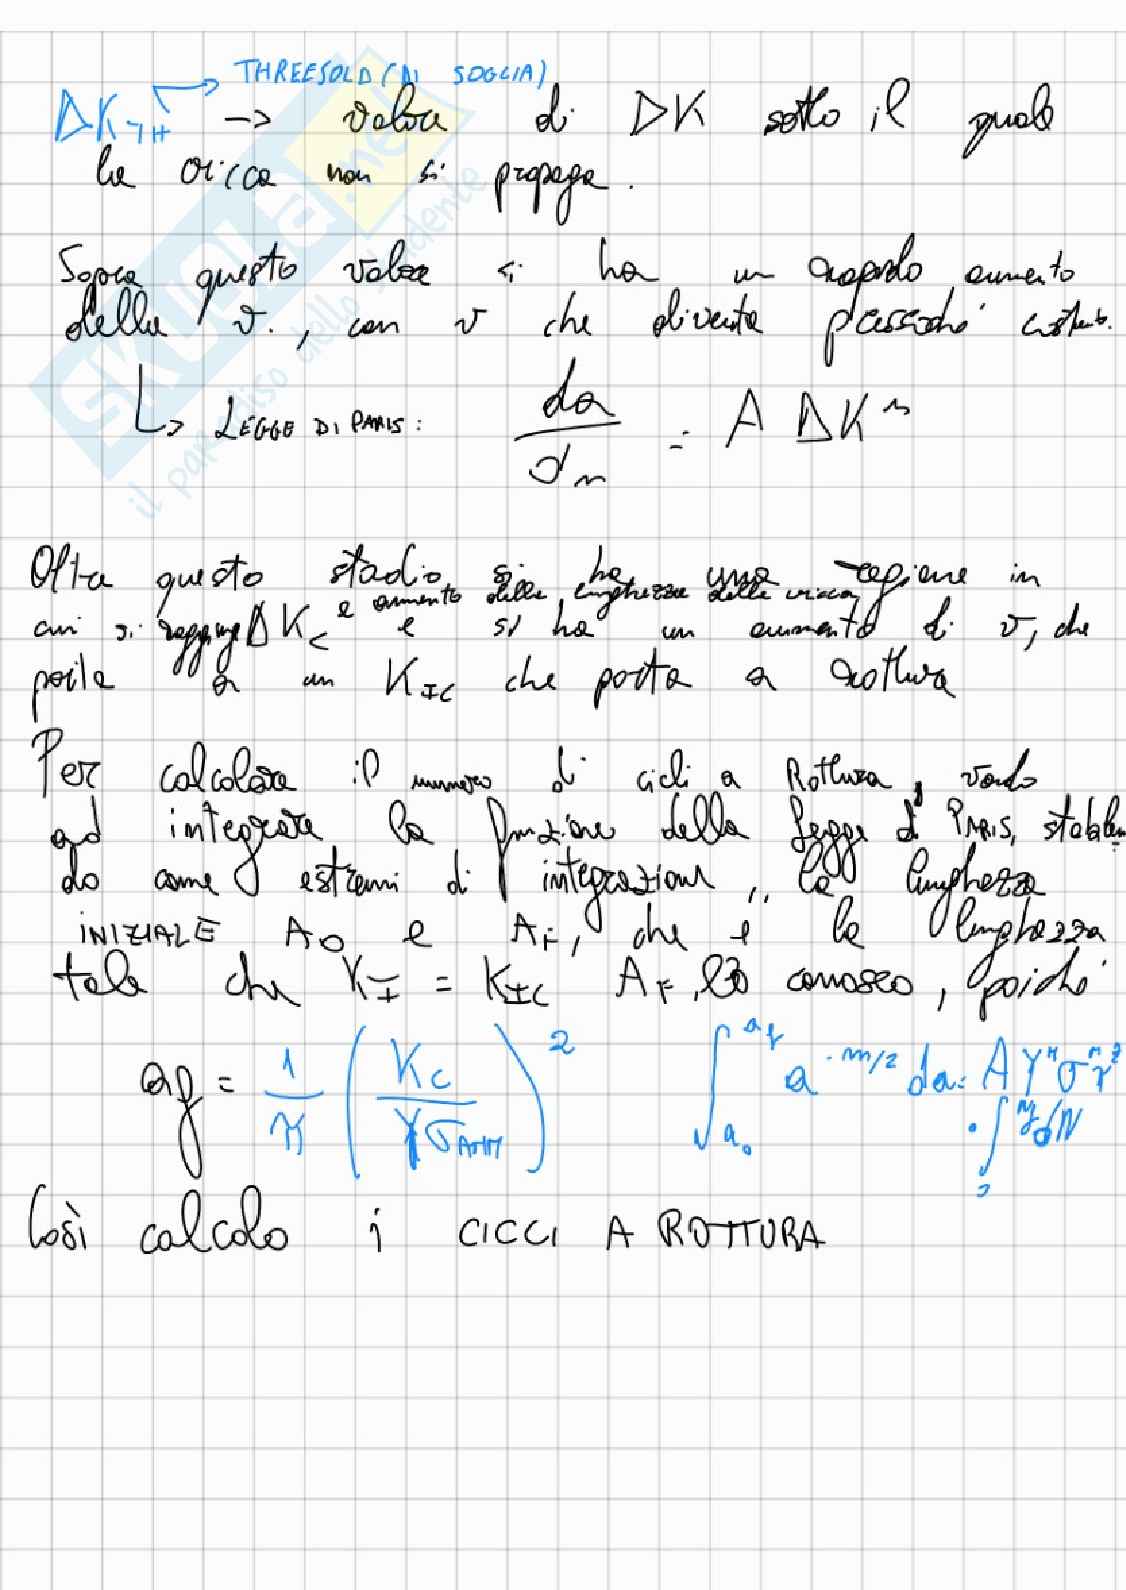 THREESOLD (DI SOGLIA)
ΔK_TH -> valore di ΔK sotto il quale
la cricca non si propaga.
Sopra questo valore si ha un rapido aumento
della v., con v che diventa pressoché costante.
↳ LEGGE DI PARIS: da/dn = A ΔK^m
Oltre questo stadio, si ha una regione in
e aumento della lunghezza della cricca,
cui si raggiunge ΔK_C e si ha un aumento di v, che
porta a un K_IC che porta a rottura
Per calcolare il numero di cicli a Rottura, vado
ad integrare la funzione della legge di PARIS, stabilen
do come estremi di integrazione, la lunghezza
INIZIALE A_0 e A_F, che è la lunghezza
tale che K_I = K_IC A_F, lo conosco, poiché
a_f = 1/π (K_C / Yσ_AMM)^2 ∫_{a_0}^{a_f} a^{-m/2} da = A Y^m σ^m π
· ∫ dN
Così calcolo i CICLI A ROTTURA
skuola.net
il paradiso dello studente